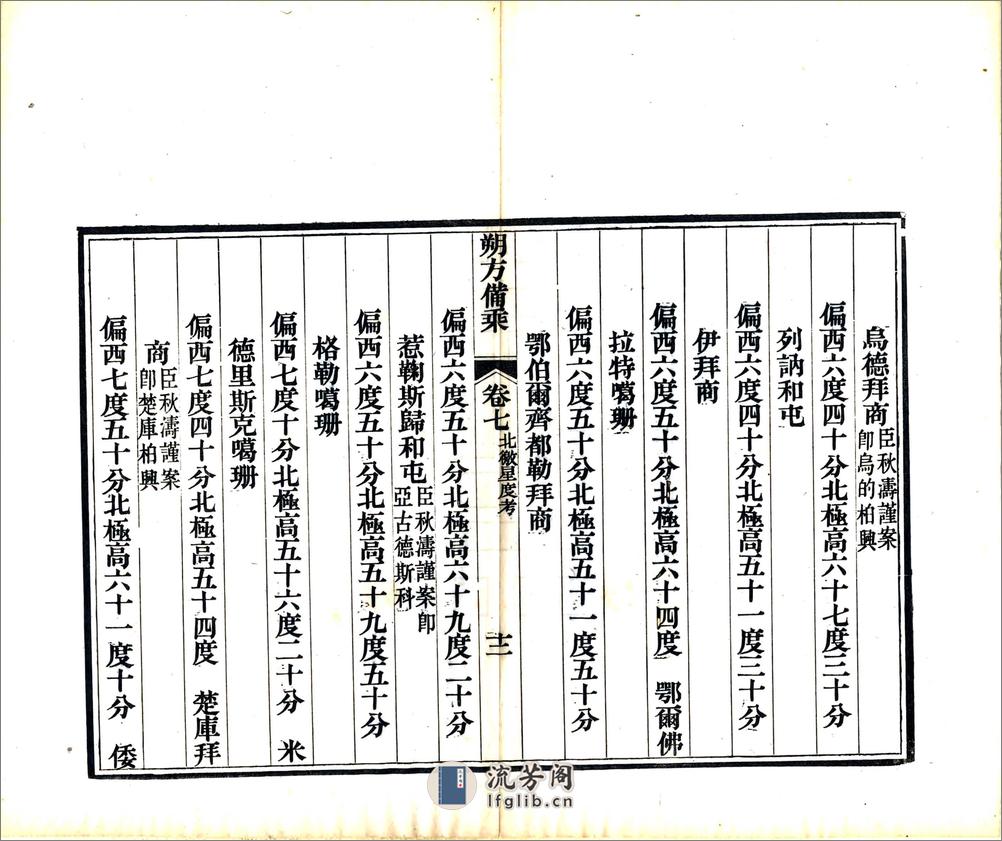 烏德拜商臣秋濤謹案卽烏的柏興
偏西六度四十分北極高六十七度三十分
列訥和屯
偏西六度四十分北極高五十一度三十分
伊拜商
偏西六度五十分北極高六十四度 鄂爾佛
拉特噶珊
偏西六度五十分北極高五十一度五十分
鄂伯爾齊都勒拜商
朔方備乘 卷七 北徼星度考 十二
偏西六度五十分北極高六十九度二十分
惹鞠斯歸和屯臣秋濤謹案卽亞古德斯科
偏西六度五十分北極高五十九度五十分
格勒噶珊
偏西七度十分北極高五十六度二十分 米
德里斯克噶珊
偏西七度四十分北極高五十四度 楚庫拜
商臣秋濤謹案卽楚庫柏興
偏西七度五十分北極高六十一度十分 倭
流芳阁
lfglib.cn